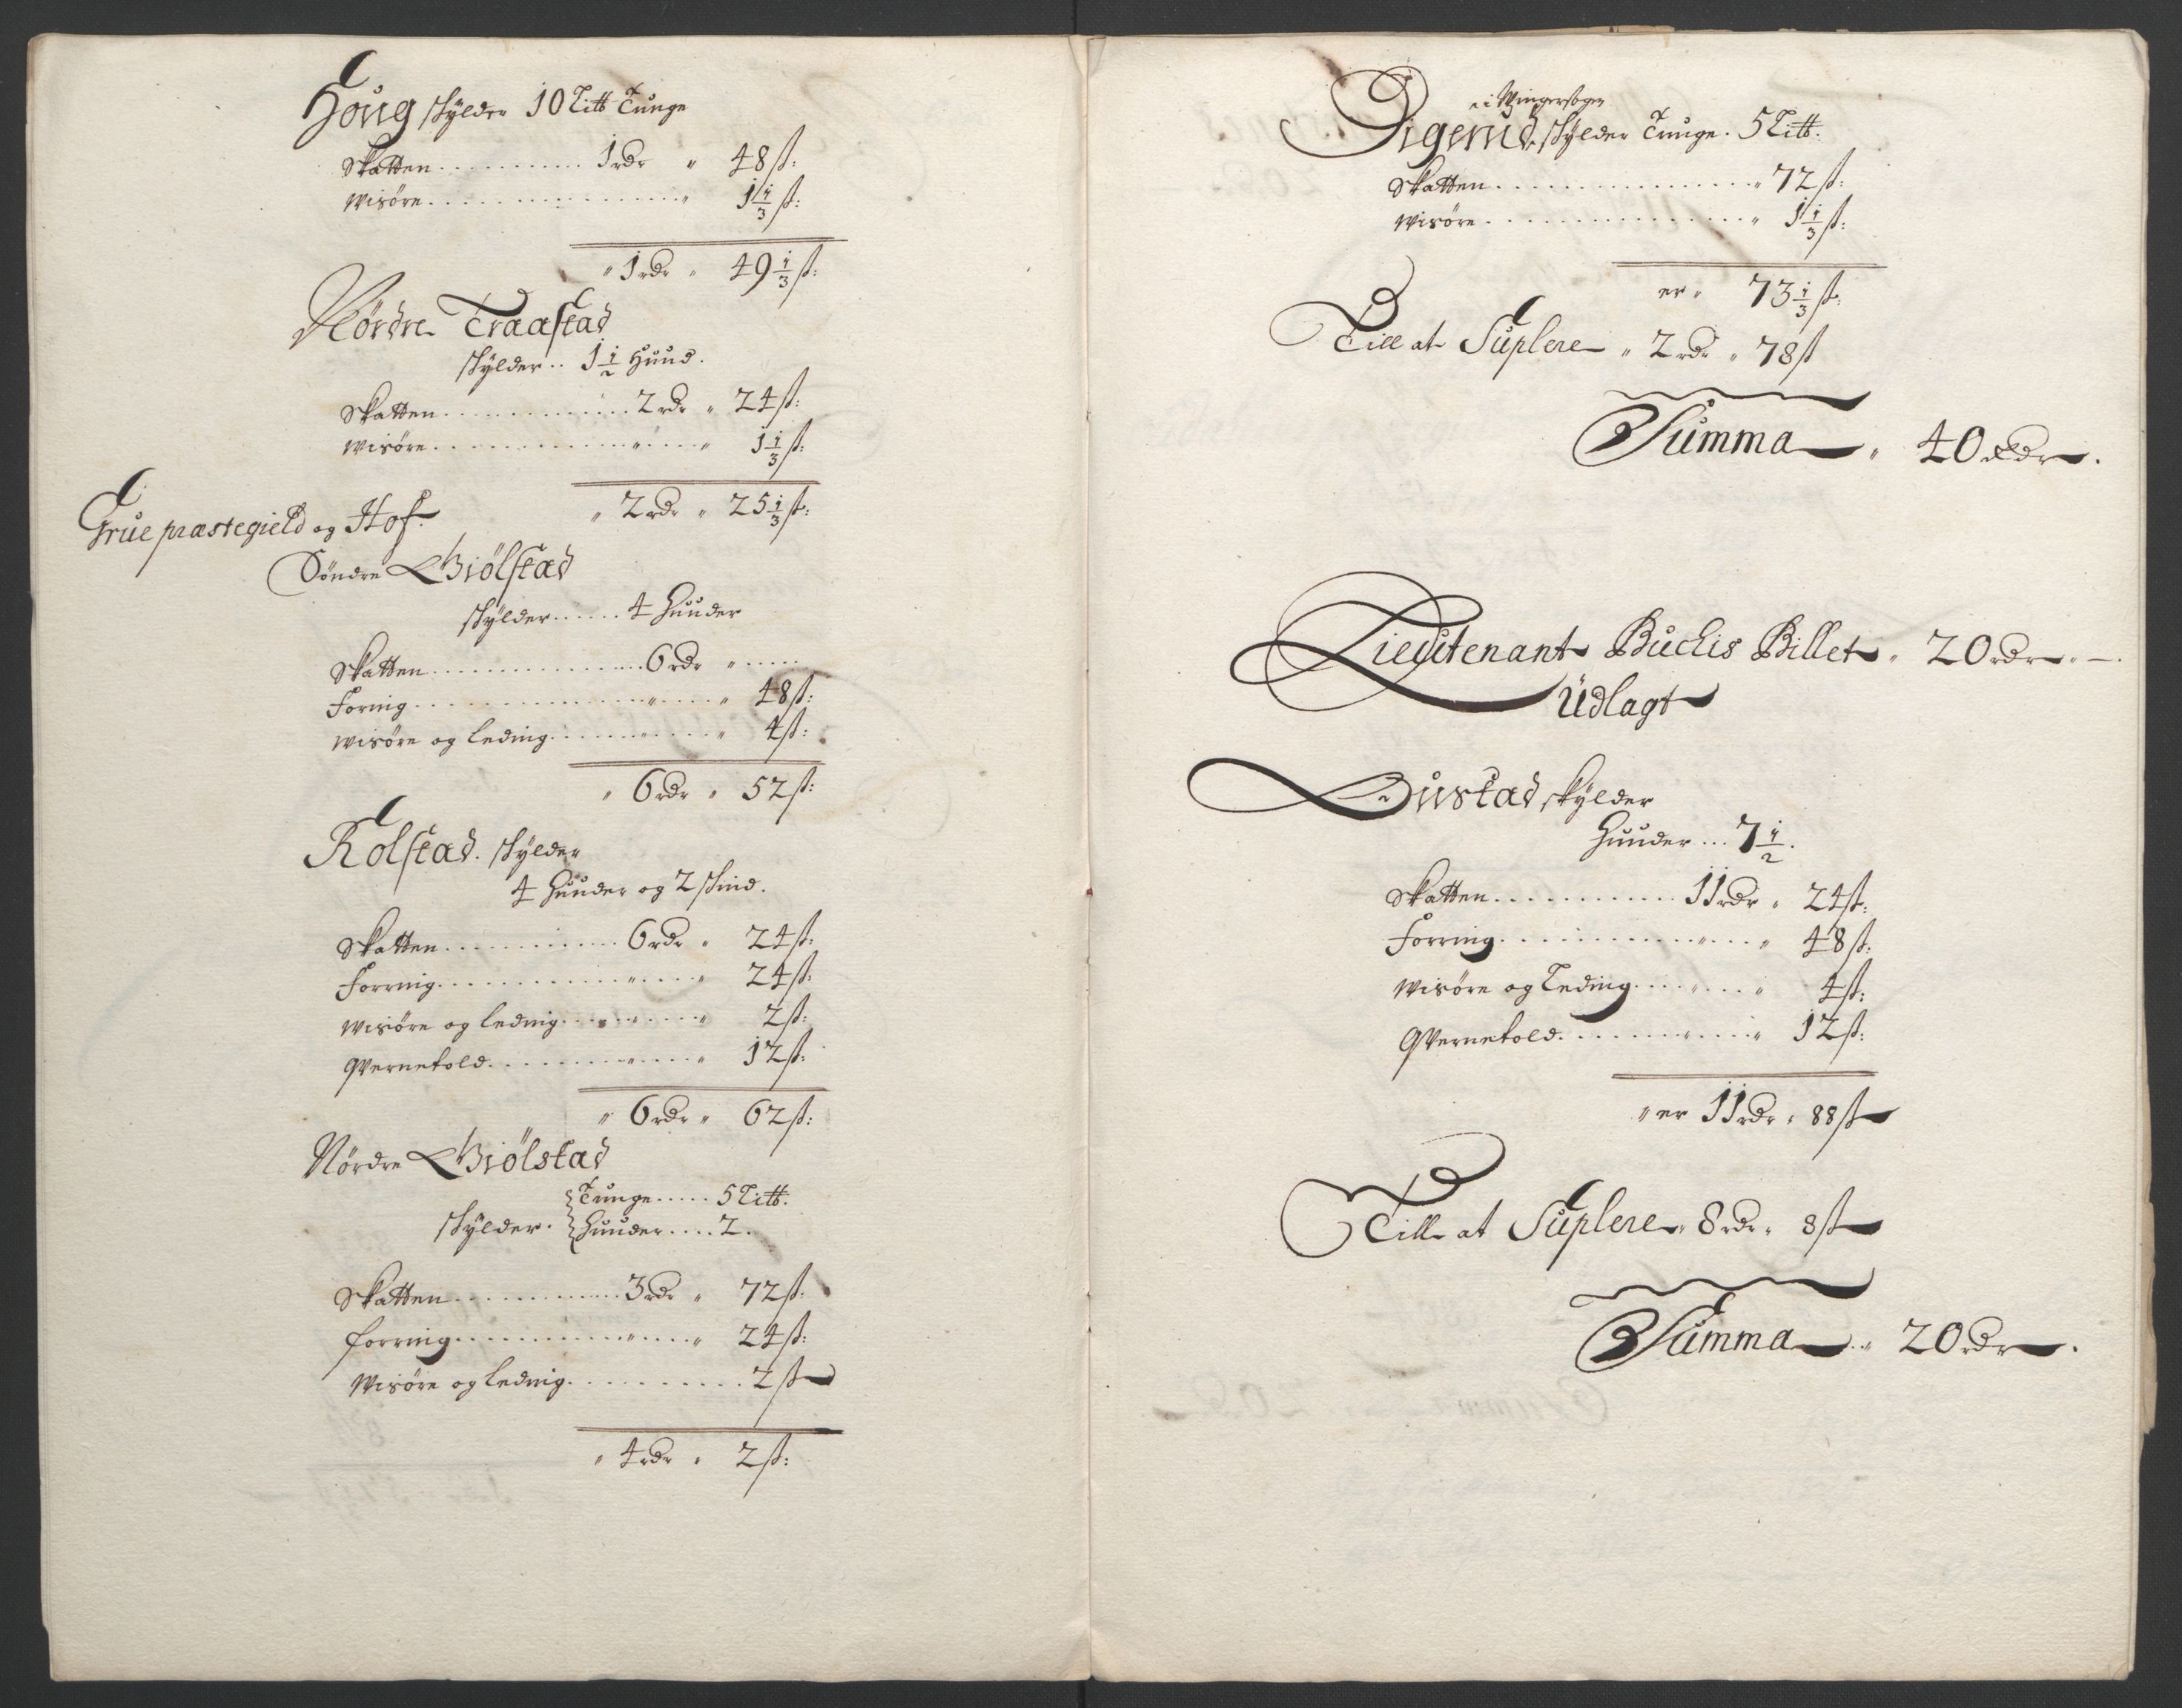 Houg skylder 10 Litt Tunge
Skatten 1 rdr " 48 ß:
Wisöre " 1 1/3 ß:
" 1 rdr " 49 1/3 ß:
Nördre Traastad
skylder .. 1 1/2 Huud.
Skatten 2 rdr " 24 ß:
Wisöre " " 1 1/3 ß:
" 2 rdr " 25 1/3 ß:
Grue præstegield og Hof.
Söndre Giölstad
skylder ...... 4 Huuder
Skatten 6 rdr "
Foring " " 48 ß:
Wisöre og leding " " 4 ß:
" 6 rdr " 52 ß:
Rolstad. skylder
4 Huuder og 2 skind.
Skatten 6 rdr " 24 ß:
Forring " " 24 ß:
Wisöre og leding " " 2 ß:
Qvernetold " " 12 ß:
" 6 rdr " 62 ß:
Nördre Giölstad
Tunge ..... 5 Litt.
skylder. Huuder .... 2.
Skatten 3 rdr " 72 ß:
forring " " 24 ß:
Wisöre og leding 2 ß
" 4 rdr " 2 ß:
i Wingersogn
Digerud, skylder Tunge. 5 Litt.
Skatten " 72 ß:
Wisöre " 1 1/3 ß:
er " 73 1/3 ß:
Till at Suplere " 2 rdr " 78 ß
Summa " 40 rdr.
Lieutenant Buchis Billet " 20 rdr " —.
Udlagt
Gustad skylder
Huuder ... 7 1/2.
Skatten 11 rdr " 24 ß:
Forring " " 48 ß:
Wisöre og Leding " " 4 ß:
Qvernetold " " 12 ß:
" er 11 rdr " 88 ß
Till at Suplere " 8 rdr " 8 ß
Summa " 20 rdr.